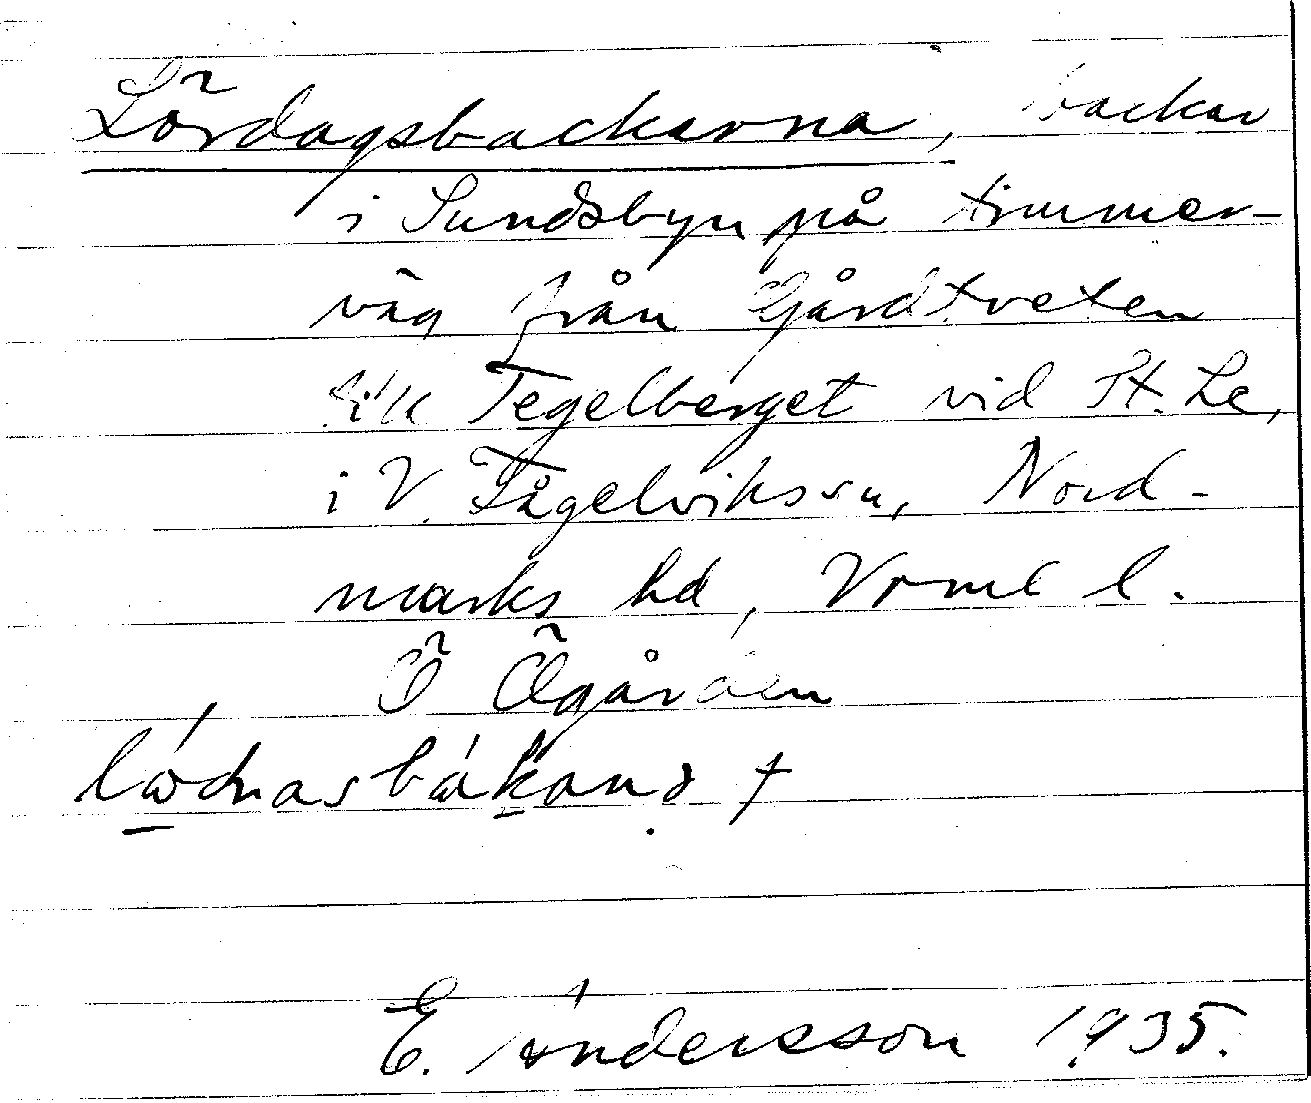 Lördagsbackarna, backar
i Sundsbyn på timmer-
väg från Gårdtveten
till Tegelberget vid St. Le,
i V. Fågelvikssn, Nord-
marks hd, Vrml l.
Ö Ögården
E. Andersson 1935.